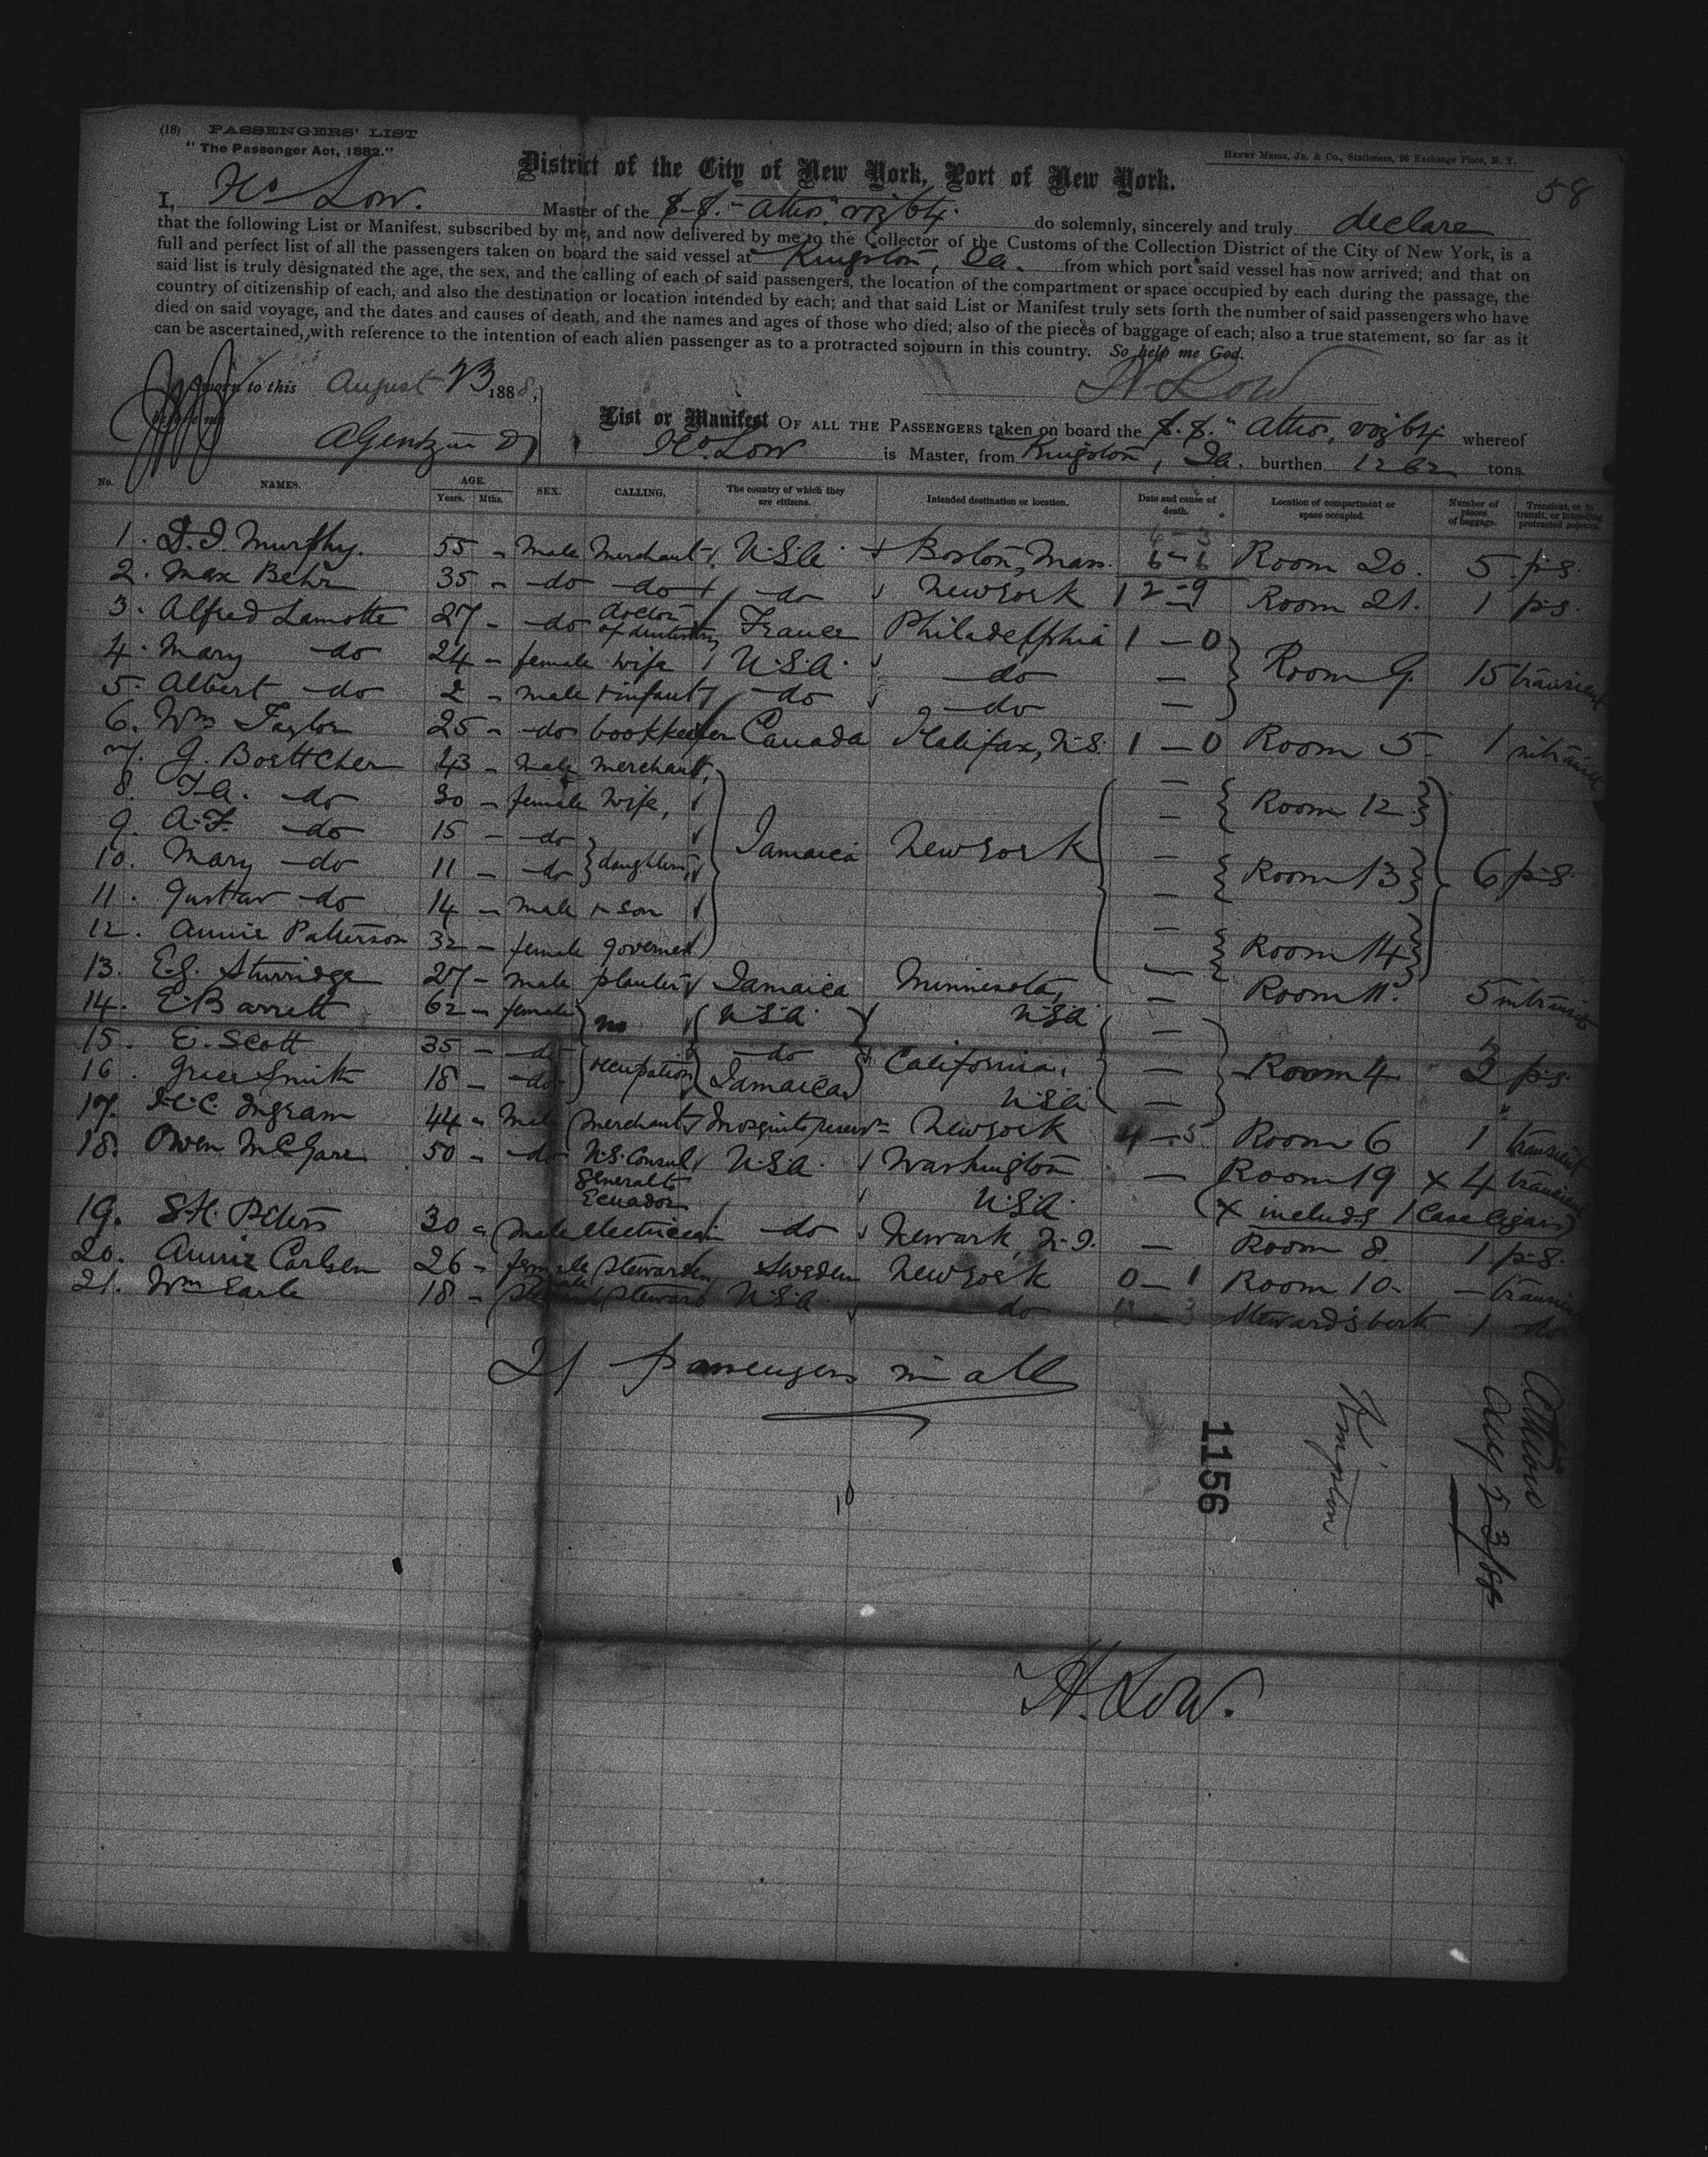 (18) PASSENGERS' LIST
"The Passenger Act, 1882."
HENRY MEIGS, JR. & CO., Stationers, 26 Exchange Place, N. Y.
58
District of the City of New York, Port of New York.
I, Hs Low. Master of the S.S. "Athos, voy 64. do solemnly, sincerely and truly declare
that the following List or Manifest, subscribed by me, and now delivered by me to the Collector of the Customs of the Collection District of the City of New York, is a
full and perfect list of all the passengers taken on board the said vessel at Kingston, Ja. from which port said vessel has now arrived; and that on
said list is truly designated the age, the sex, and the calling of each of said passengers, the location of the compartment or space occupied by each during the passage, the
country of citizenship of each, and also the destination or location intended by each; and that said List or Manifest truly sets forth the number of said passengers who have
died on said voyage, and the dates and causes of death, and the names and ages of those who died; also of the pieces of baggage of each; also a true statement, so far as it
can be ascertained, with reference to the intention of each alien passenger as to a protracted sojourn in this country. So help me God.
Sworn to this August 23 1888,
H Low
List or Manifest OF ALL THE PASSENGERS taken on board the S.S. "Athos, voy 64 whereof
Hs. Low is Master, from Kingston, Ja. burthen 1262 tons.
No. NAMES. AGE. Years. Mths. SEX. CALLING. The country of which they are citizens. Intended destination or location. Date and cause of death. Location of compartment or space occupied. Number of pieces of baggage. Transient, or in transit, or intending protracted sojourn.
1. D.J. Murphy. 55 - male merchant U.S.A. Boston, Mass. 6-6 Room 20. 5 p.s.
2. Max Behr 35 - do do do New York 12-9 Room 21. 1 p.s.
3. Alfred Lamotte 27 - do doctor of dentistry France Philadelphia 1-0
4. Mary do 24 - female wife U.S.A. do - Room 9. 15 transient
5. Albert do 2 - male infant do do -
6. Wm Taylor 25 - do bookkeeper Canada Halifax, N.S. 1-0 Room 5 1 in transit
7. G. Boettcher 43 - male merchant, -
8. J.A. do 30 - female wife, - Room 12
9. A.F. do 15 - do Jamaica New York -
10. Mary do 11 - do daughters, - Room 13 6 p.s.
11. Gustav do 14 - male son -
12. Annie Patterson 32 - female governess - Room 14
13. E.G. Sturridge 27 - male planter Jamaica Minnesota, USA - Room 11. 5 in transit
14. E. Barrett 62 - female no USA -
15. E. Scott 35 - do occupation do California, - Room 4 3 p.s.
16. Grace Smith 18 - do Jamaica USA -
17. Ingram 44 - male merchant Mosquito reserve New York 4-5 Room 6 1 transient
18. Owen McGarr 50 - do U.S. Consul General to Ecuador U.S.A. Washington USA. - Room 19 x 4 transient
(x includes 1 Case Cigars)
19. S.H. Peters 30 - male electrician do Newark, N.J. - Room 8. 1 p.s.
20. Annie Carlsen 26 - female stewardess, Sweden New York 0-1 Room 10. - transient
21. Wm Earle 18 - male steward U.S.A. do Steward's berth 1 do
21 passengers in all
1156
Kingston
Athos
Aug 23/88
10
H. Low.